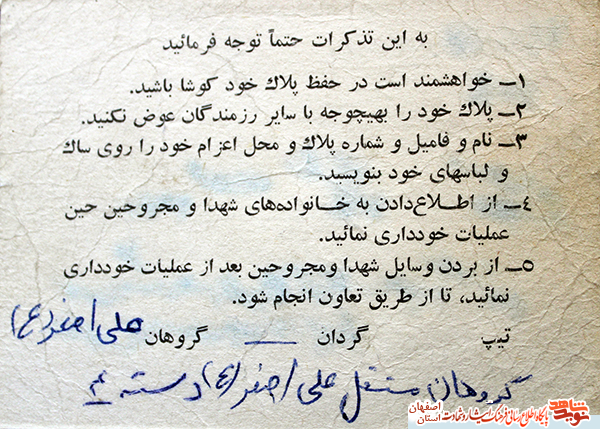 به این تذکرات حتماً توجه فرمائید
۱ـ خواهشمند است در حفظ پلاك خود کوشا باشید.
۲ـ پلاك خود را بهیچوجه با سایر رزمندگان عوض نکنید.
۳ـ نام و فامیل و شماره پلاك و محل اعزام خود را روی ساك
و لباسهای خود بنویسید.
٤ـ از اطلاع‌دادن به خانواده‌های شهدا و مجروحین حین
عملیات خودداری نمائید.
۵ـ از بردن وسایل شهدا ومجروحین بعد از عملیات خودداری
نمائید، تا از طریق تعاون انجام شود.
تیپ گردان — گروهان علی اصغر (ع)
گروهان مستقل علی اصغر (ع) دسته ۳
نوید شاهد اصفهان
پایگاه اطلاع رسانی فرهنگ ایثار و شهادت استان